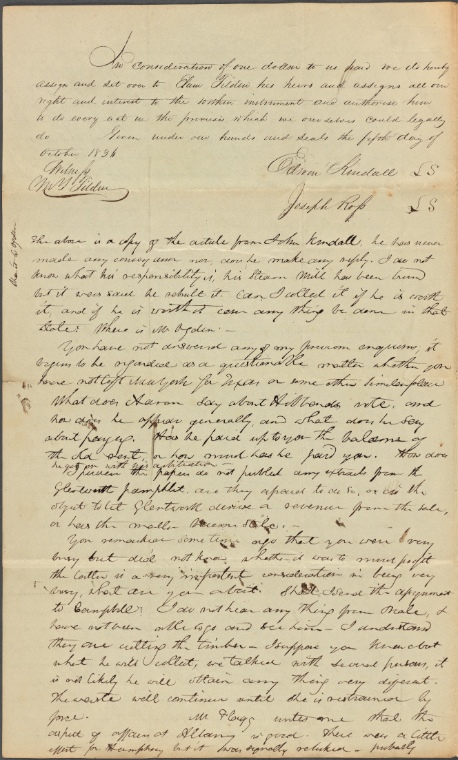 In consideration of one dollar to us paid we do hereby
assign and set over to Elam Tilden his heirs and assigns all our
right and interest to the within instrument and authorise him
to do every act in the premises which we ourselves could legally
do. Given under our hands and seals the fifth day of
October 1836
Witness
M Y Tilden
Edson Kendall L S
Joseph Ross L S
The above is a copy of the article from John Kendall, he has never
made any conveyance nor does he make any reply. I do not
know what his responsibility is, his Steam Mill has been burnd
but it was said he rebuilt it. Can I collect it if he is worth
it, and if he is worth it can any thing be done in that
State? Where is Mr Ogden? —
You have not answered any of my previous enquiries, it
begins to be regarded as a questionable matter whether you
have not left New York for Texas or some other place
What does Aaron say about Hubbards vote, and
how does he appear generally, and what does he say
about pay. Has he paid up to you the balance of
the sent, or how much has he paid you. How does
he get on with his application —
the papers do not publish any extracts from the
Glentworth pamphlet. are they afraid to do so, or is the
object to let Glentworth derive a revenue from the sale,
or has the matter become stale. —
You remarked sometime ago that you were very
busy but did not know whether it was to much profit
the latter is a very important consideration in being very
busy, what are you about. Shall I send the argument
to Campbell? I do not hear any thing from , I
have not been able to go and see him — I understand
they are cutting the timber — I suppose you know about
what he will collect, we talked with several persons, it
is not likely he will obtain any thing very different.
The waste will continue until she is restrained by
force. Mr Flagg writes me that the
aspect of affairs at Albany is good. There was a little
effort for Humphrey but it was signally rebuked — probably